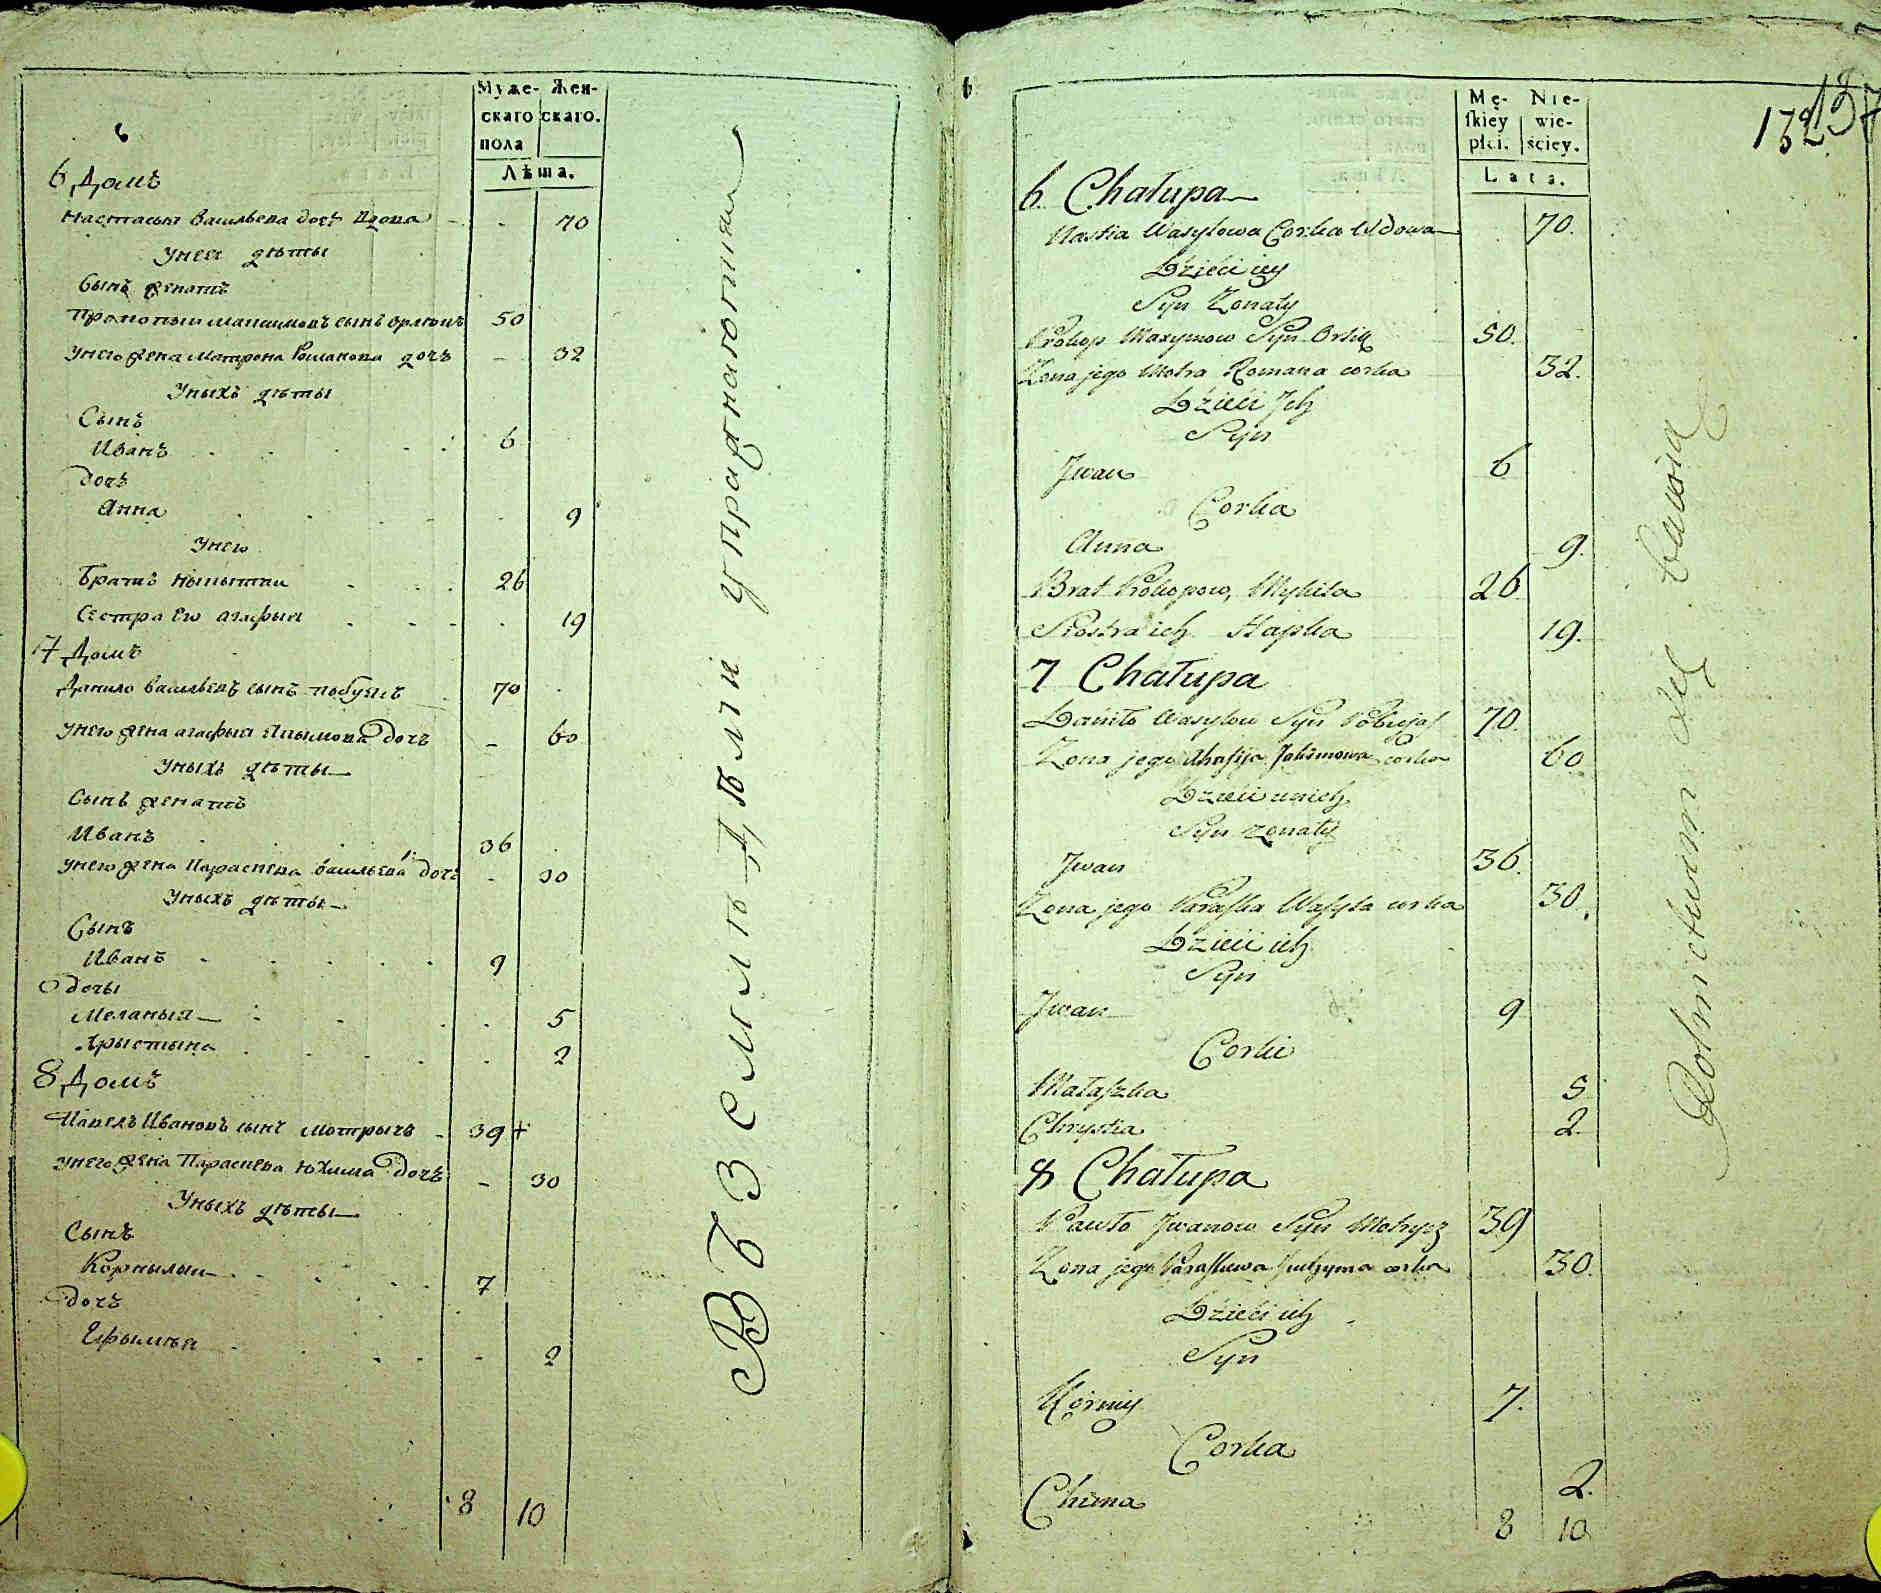 Муже- Жен-
скаго скаго.
пола
Лѣта.
6 Домъ
Настасья Васильева дочь Вдова - - 70
Унея дѣты
Сынъ женатъ
Прокопъи Максимовъ сынъ Орлюкъ 50
Унего жена Матрона Романова дочъ - 32
Уныхъ дѣты
Сынъ
Иванъ 6
дочъ
Анна 9
Унего
Братъ Ныкытка 26
Сестра его агафыя 19
7 Домъ
Данило Васильевъ сынъ 70
Унего жена агафыя Якымова дочъ - 60
Уныхъ дѣты
Сынъ женатъ
Иванъ 36
Унего жена Параскева Васильева дочъ - 30
Уныхъ дѣты
Сынъ
Иванъ 9
дочы
Меланыя 5
Хрыстына 2
8 Домъ
Павелъ Ивановъ сынъ Мотрычъ - 39 +
Унего жена Параскева Юхима дочъ - 30
Уныхъ дѣты
Сынъ
Корнылыи 7
дочъ
Ефымъя - 2
8 10
Въ земледѣлѣи упражнаютца
132 137
Mę- Nie-
skiey wie-
płci. ściey.
Lata.
6 Chałupa
Nastia Wasylowa Corka Wdowa 70.
Dzieci iey
Syn Zonaty
Prokop Maxymow Syn Orluk 50.
Zona jego Motra Romana corka 32.
Dzieci Ich
Syn
Jwan 6
Corka
Anna 9.
Brat Prokopow, Mykita 26
Siostra ich Hapka 19.
7 Chałupa
Daniło Wasylow Syn 70.
Zona jego Ahafija Jakimowa corka 60
Dzieci unich
Syn zonaty
Jwan 36.
Zona jego Paraska Wasyla corka 30.
Dzieci ich
Syn
Jwan 9
Corki
Małaszka 5
Chrystia 2.
8 Chałupa
Pawło Jwanow Syn Motrycz 39
Zona jego Paraskewa Juchyma corka 30.
Dzieci ich
Syn
Korniy 7.
Corka
Chima 2.
8 10
Rolnictwem się bawią